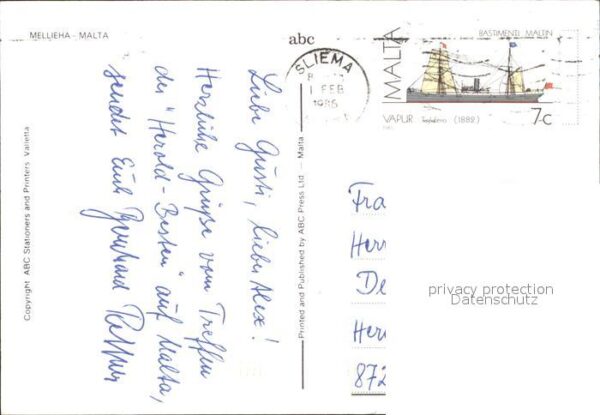 MELLIEHA - MALTA
abc
SLIEMA
1 FEB
1986
MALTA
BASTIMENTI MALTIN
VAPUR Tagliaferro (1882)
7c
Liebe Gusti, lieber Alex!
Herzliche Grüße vom Treffen
der "Herold-Besten" auf Malta,
sendet Euch Bernhard
Copyright ABC Stationers and Printers Valletta
Printed and Published by ABC Press Ltd — Malta
Fra
Her
De
Her
872
privacy protection
Datenschutz